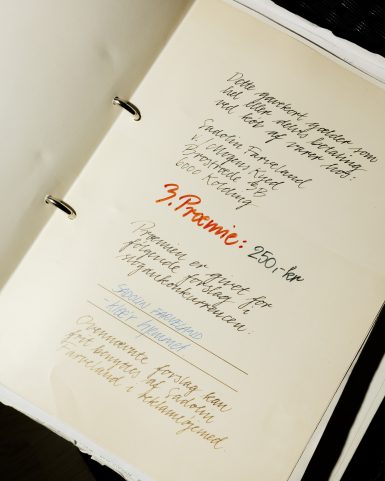 Dette gavekort gælder som
hel eller delvis betaling
ved køb af varer hos:
Sadolin Farveland
v/Mogens Kjed
Bredgade
6000 Kolding
3. Præmie: 250,- kr
Præmien er givet for
følgende forslag i
slogankonkurrencen:
SADOLIN FARVELAND
- hjemmet
Ovennævnte forslag kan
frit benyttes af Sadolin
Farveland i reklameøjemed.